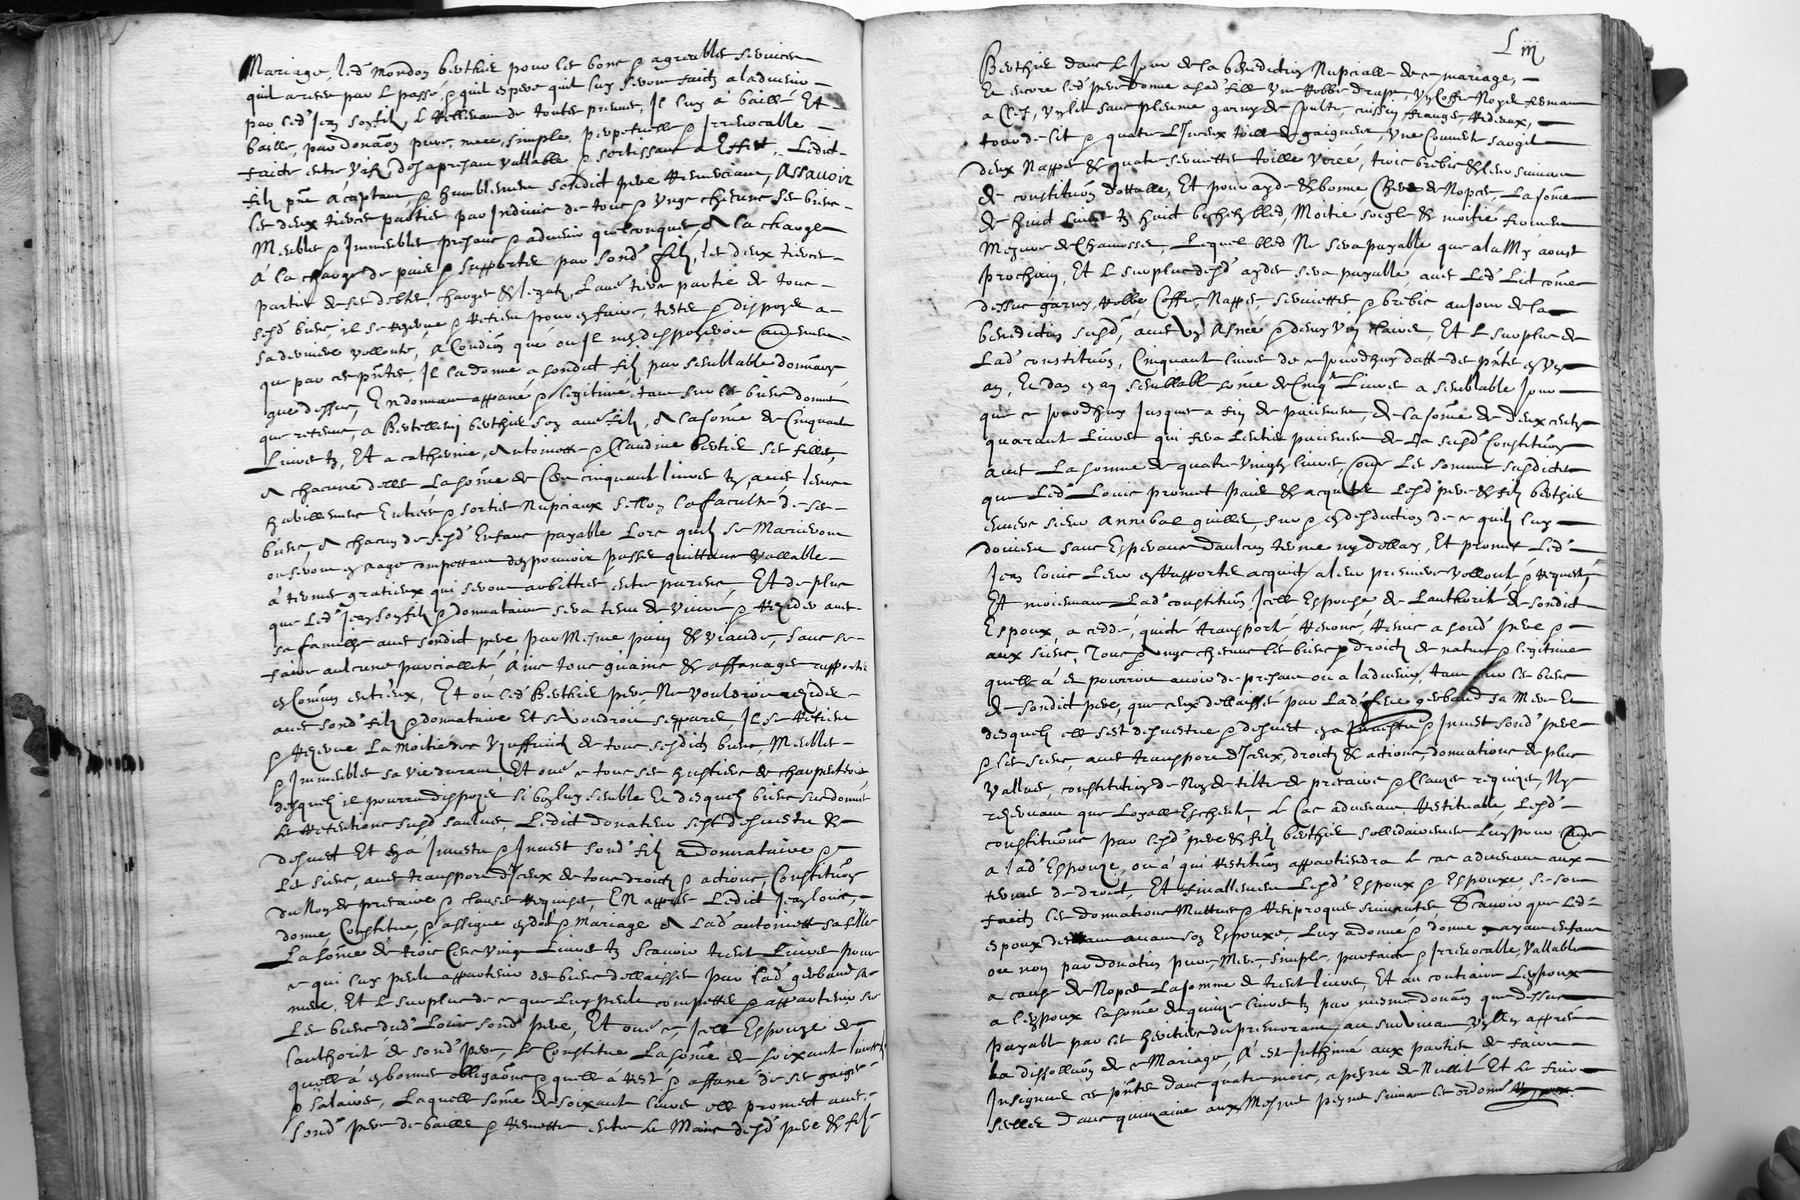 Mariage, led. Mondon berthier pour les bons & agreables services
quil a receu par le passé, & quil espere quil luy seront faictz a ladvenir
par led. Jean son filz, le rellevant de toutes preuves, Il luy à baillé Et
baille, par donaõn pure, mere, simple, perpetuelle & Irrevocable
faicte entre vifz des a present vallable & sortissant a Effect, Ledict
filz pñt acceptant, & humblement sondict pere remerciant, Assavoir
les deux tierces parties par Indivis de tous & ungs chescuns ses biens
Meubles & Immeubles presens & advenir quelconques, A la charge
A la charge de paier & supporter par sond. filz, les deux tierces
parties de ses debtes, charges & legatz, Laue tierce partie de tous
sesd. biens, il se reserve & retient pour en faire, tester & disposer a
sa derniere vollonté, A Condiõn que ou Il nen disposeroit
que par ces pñtes, Il la donne a sondict filz par semblable donnaõn
que dessus, En donnant appané & legitime, tant sur les biens donnes
que retenus, a Berthellemi berthier son aue filz, A la some de Cinquante
Livres tz, Et a catherine, Antoinette & Claudine bertier ses filles,
A chacune delles La some de Cent cinquante livres tz, avec leurs
habillemens Entrees & sorties Nupciaux sellon la faculté de ses
biens, A chacun de sesd. Enfans payable Lors quilz se Marieront
ou seront en eage competant de pouvoir passer quittance vallable
à termes gratieux qui seront arbittres entre parens, Et de plus
que Led. Jean son filz & donnataire sera tenu de vivre & resider avec
sa famille avec sondict pere, par Mesme pain & viande, sans se
faire aulcune parciallité, Ains tous guains & affanages rapporter
en Comun entreux, Et ou led. Berthier pere, Ne vouldroit resider
avec sond. filz & donnataire Et se voudroit sepparer Il se retient
& reserve La moitie des Usuffruictz de tous sesdictz biens, Meubles
& Immeubles sa vie durant, Et oue ce tous ses hustiers de charpenterie
desquelz il pourra disposer si bon luy semble Et desquelz biens susdonnes
Les retentions susd. sauves, Ledict donateur sest desmetu &
desvest Et en a Investu & Invest sond. filz & donnataire &
Les siens, avec transport diceux de tous droictz & actions, Constitution
du Nom de precaire & clauses requises, En appres Ledict Jean louis,
donne, Constitue, & assigne en dot & Mariage A Lad. antoinette sa fille
La some de trois Cens vingt Livres tz Scavoir trente Livres pour
ce qui luy peult appartenir des biens dellaisses par lad. gerbaud sa
mere, Et le surplus de ce que Luy peult competter & appartenir sur
Les biens dud. Louis sond. pere, Et oue ce Icelle Espouse de
lauthorité de sond. pere, Se Constitue La some de soixante livres
quelle à en bonnes obligaons & quelle à resté & affané de ses gaiges
& salaires, Laquelle some de soixante livres elle promect avec
sond. pere de bailler & remettre entre les Mains desd. pere & filz
Liiij
Berthier dans le Jour de la benediction Nupcialle de ce mariage,
Et encore led. pere donne a sad. fille une Robbe drapt, un Coffre Noyer fermant
a Clef, un lit sans plume garny de coultre, cuissin, franges, Rideaux,
tour de lit & quatre Linceux toille de gaigneur, une Couverte sargil
deux Nappes & quatre serviettes toille virée, trois brebis & leur suivant
de constitution dottalle, Et pour ayde & bonne Chere de Nopces, La some
de huict Livres tz huict bichetz bled, Moitie soigle & moitie froment
Mesure de Chamosset, Lequel bled Ne sera payable que a la My aoust
prochain, Et le surplus desd. aydes sera payable avec Led. Lict come
dessus garny, Robbe, Coffre, Nappes, serviettes & brebis au Jour de la
benediction susd., avec un Asnée & deux Vin claire, Et le surplus de
Lad. constitution, Cinquante livres de ce jourdhuy datte des pñtes en un
an, Et dan en an semblable some de Cinqte Livres a semblable jour
que ce jourdhuy Jusques a fin de paiement de la some de deux centz
quarante Livres qui sera Lentier paiement de La susd. Constitution
avec La somme de quatre vingtz livres Les sommes susdictes
que Led. Louis promet paier & acquiter Lesd. pere & filz berthier
envers sieur Annibal guillet, sur & en desduction de ce quilz luy
doivent sans Esperance daulcun terme ny dellay, Et promet Led.
Jean louis Leur en rapporter acquit a leur premiere vollonté & requeste,
Et moienant Lad. constitution Icelle Espouse de Lauthorité de sondict
Espoux, a ceddé, quicté, transporté, renoncé, remis a sond. pere &
aux siens, Tous & ungs chescuns les biens & droictz de nature & legitime
quelle à et pourroit avoir de present ou a ladvenir, tant sur les biens
de sondict pere, que ceux dellaissés par Lad. feue gerbaud sa Mere Et
desquelz elle sest desvestue & desvest en a Investu & Invest sond. pere
& les siens, avec transport diceux, droictz & actions, donnations de plus
vallues, constitution de Nom de tiltre de precaire & clauses requises, Ny
reservant que Loyalle Escheute, Le Cas advenant Restituable, Lesd.
constitutions par lesd. pere & filz berthier sollidairement Lung pour
a lad. Espouze, ou à qui Restitution appartiendra Le cas advenant aux
termes de droict, Et finallement Lesd. Espoux & Espouxe, se sont
faictz les donnations Muttues & Reciproques suivantes, Scavoir que Led.
espoux mourant avant son Espouxe, Luy a donné & donne ayant enfans
ou non par donation pure, Mere, simple, parfaicte & Irrevocalle, Vallable
a cause de Nopces La somme de trente livres, Et au contraire Lespouxe
a lespoux la some de quinze livres tz par mesme donaõn que dessus
payable par les heritiers du premorant au survivant un an appres
La dissolluõn de ce Mariage, A esté Inthimé aux parties de faire
Insignuer ces pñtes dans quatre mois, a peyne de Nullité Et le faire
seeller dans quinzaine aux Mesmes peynes suivant les ordonnes